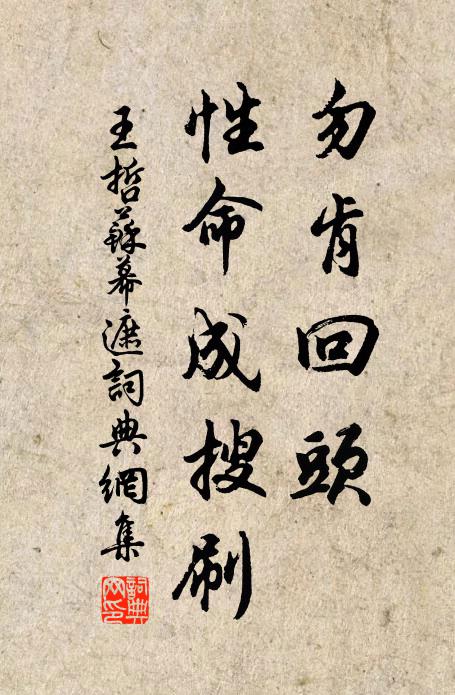 勿肯回頭
性命成搜刷
王哲蘇幕遮詞典網集
詞典網印